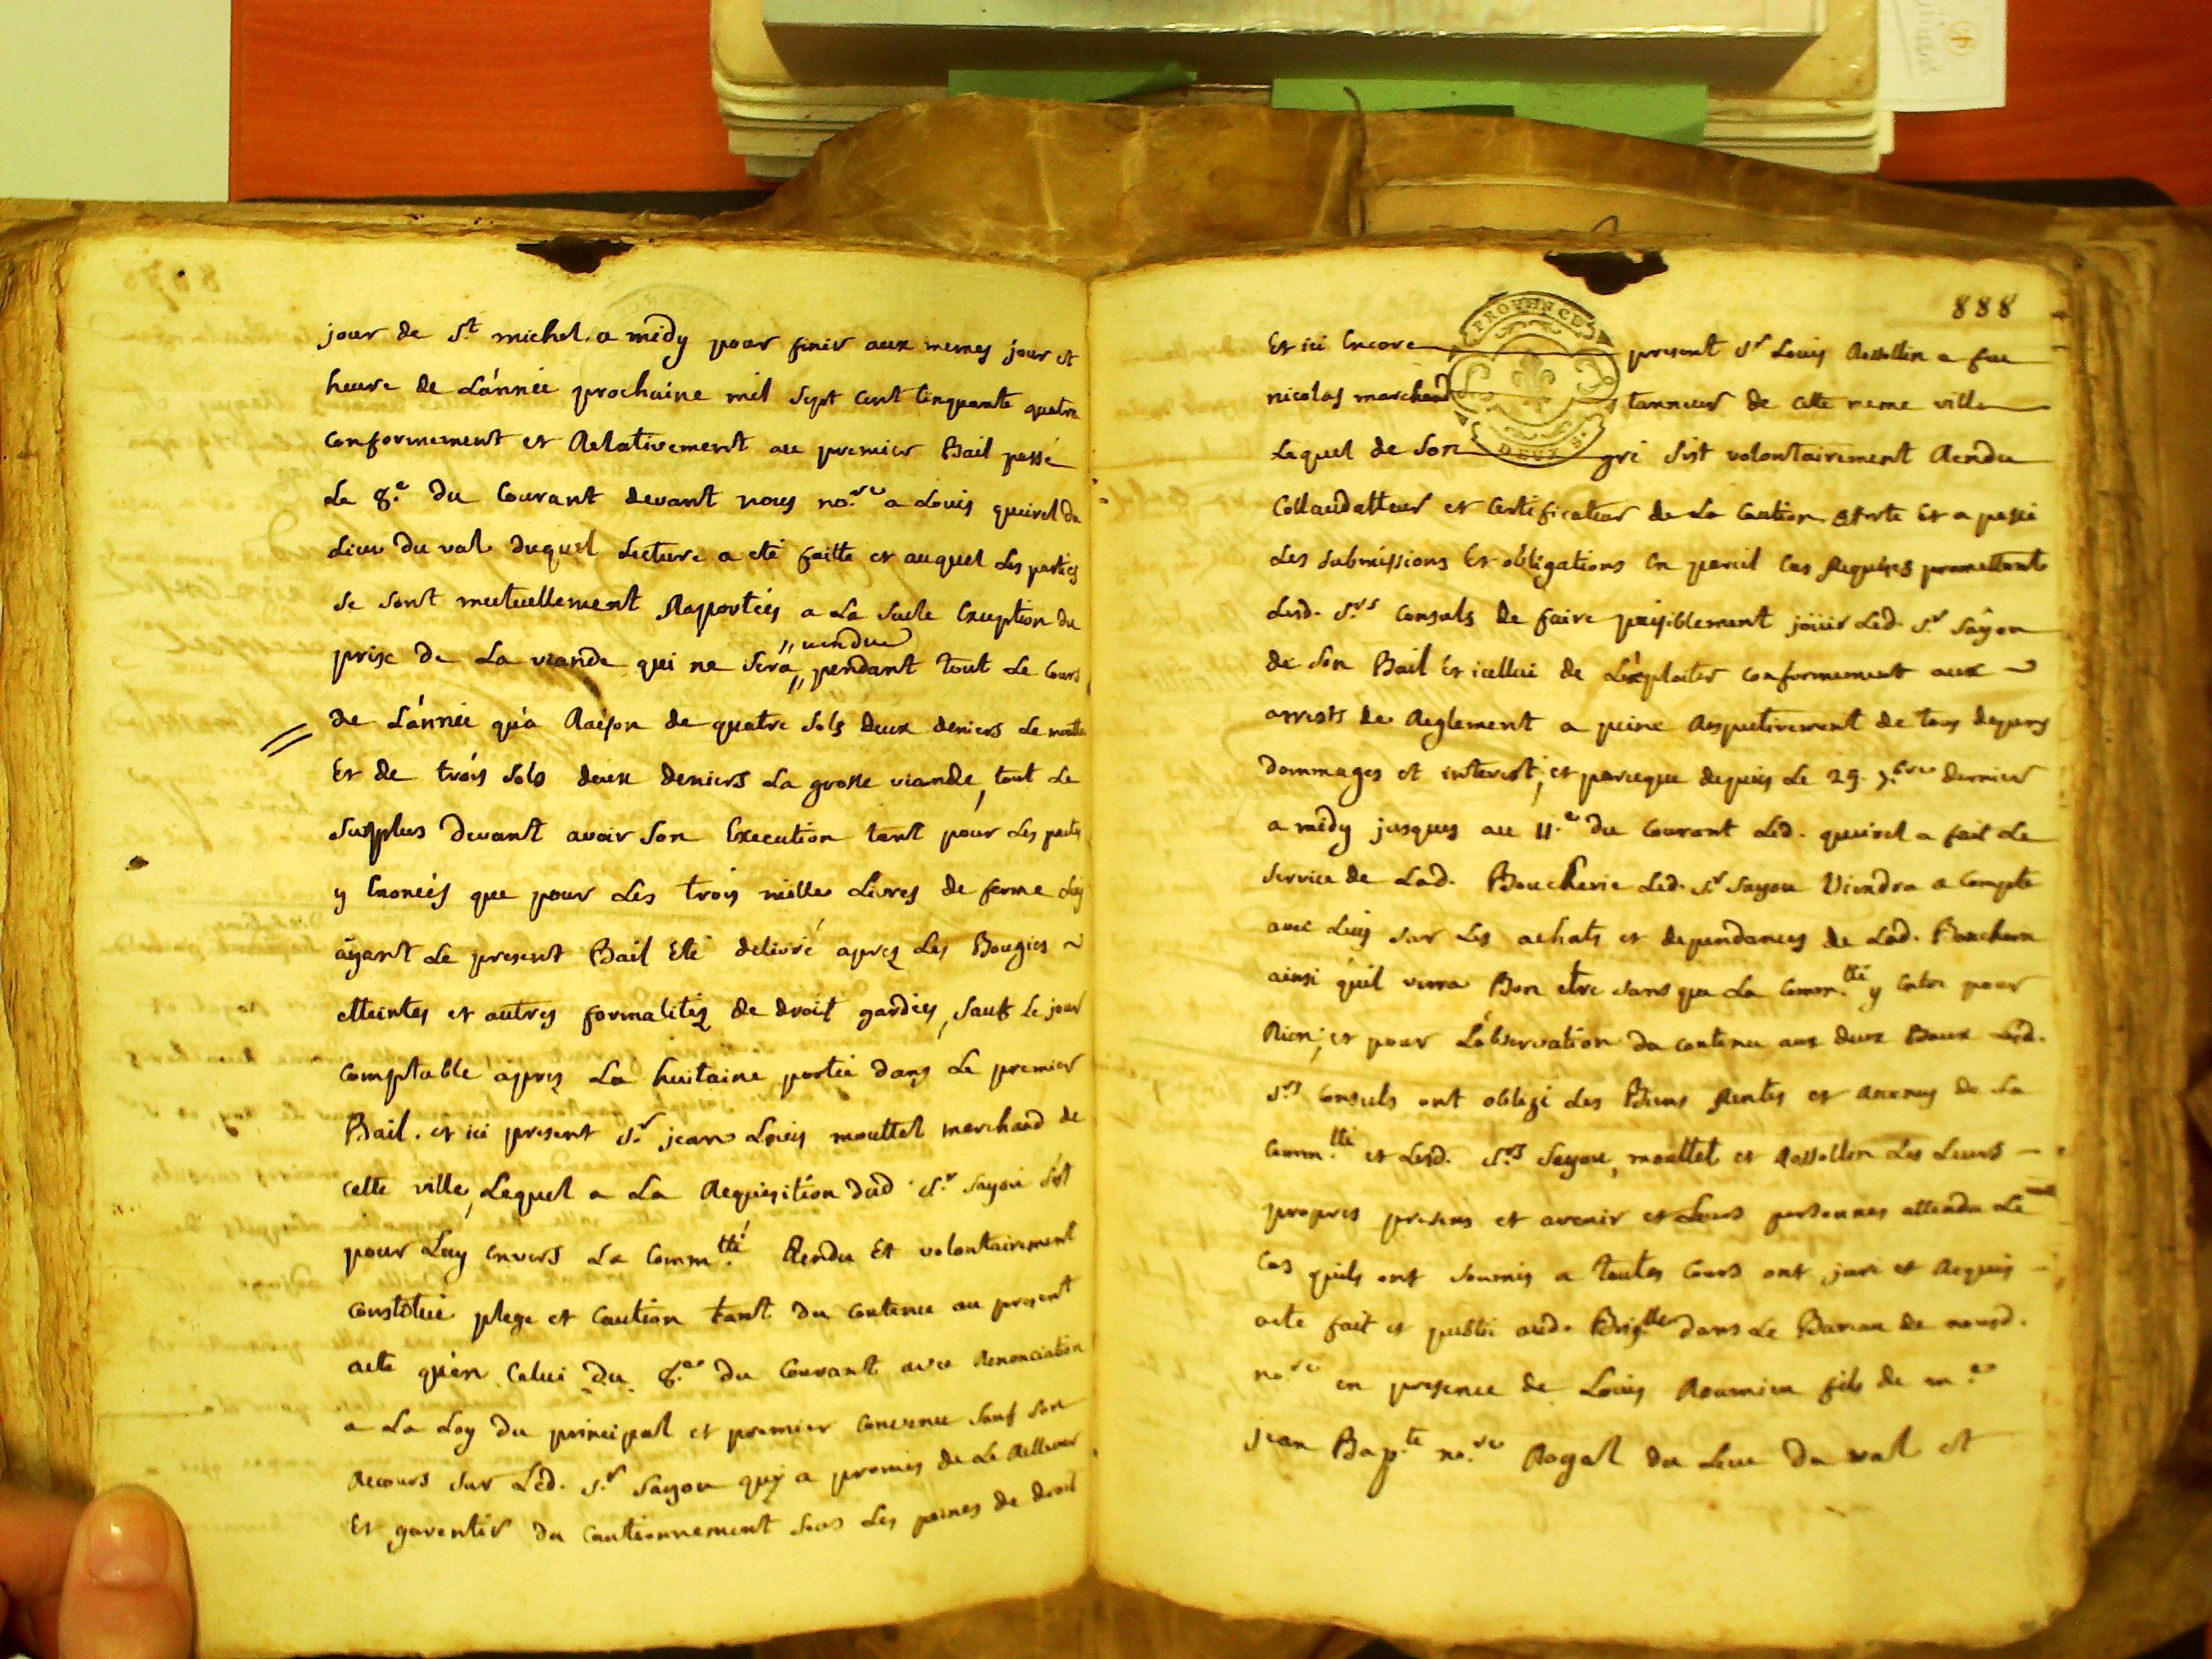 jour de S.t michel a midy pour finir aux memes jour et
heure de L'année prochaine mil sept cent cinquante quatre
conformement et Relativement au premier Bail passé
Le 8.e du Courant devant nous no.re a Louis quirel du
Lieu du val duquel Lecture a eté faitte et auquel Les parties
se sont mutuellement Raportées a La seule Exception du
prix de La viande qui ne sera "vendue" pendant tout Le Cours
de L'année qu'a Raison de quatre sols deux deniers Le mouton
Et de trois sols deux deniers La grosse viande, tout Le
surplus devant avoir son Execution tant pour Les pactes
y Enoncés que pour Les trois mille Livres de ferme
äyant Le present Bail Eté delivré apres Les Bougies
etteintes et autres formalités de droit gardées, sauf Le jour
comptable apres La huitaine portée dans Le premier
Bail. et ici present S.r jean Louis mouttet marchand de
cette ville, Lequel a La Requisition dud. S.r sayou s'est
pour Luy envers La Comm.tté Rendu Et volontairement
constitué plege et Caution tant du Contenu au present
acte qu'en Celui du 8.e du Courant avec Renonciation
a La Loy du principal et premier convenu sauf son
Recours sur Led. S.r sayou quy a promis de Le Rellever
Et garentir du Cautionnement sous Les peines de droit
888
PROVENCE
DEUX S.
Et ici Encore present S.r Louis Rossollin a feu
nicolas marchand tanneur de cette meme ville
Lequel de son gré s'est volontairement Rendu
Collaudatteur et Certificateur de La Caution Et a passé
Les submissions Et obligations En pareil Cas Requises promettant
Lesd. S.rs Consuls de faire paisiblement joüir Led. S.r säyou
de son Bail Et icellui de L'exploiter conformement aux
arrests de Reglement a peine Respectivement de tous depens
dommages et interest; et parceque depuis Le 29. 7.bre dernier
a midy jusques au 11.e du Courant Led. quirel a fait Le
service de Lad. Boucherie Led. S.r sayou Viendra a Compte
avec Luy sur Les achats et dependances de Lad. Boucherie
ainsi qu'il verra Bon etre sans que La Comm.tté y Entre pour
Rien; et pour L'observation du contenu aux deux Baux Lesd.
S.rs Consuls ont obligé Les Biens Rentes et Revenus de La
Comm.tté et Lesd. S.rs sayou, mouttet et Rossollin Les Leurs
propres presens et avenir et Leurs personnes attendu Le
Cas quils ont soumis a toutes Cours ont juré et Requis
acte fait et publié aud. Brig.lles dans Le Bureau de nousd.
no.re en presence de Louis Roumieu fils de m.e
jean Bap.te no.re Royal du Lieu du val et